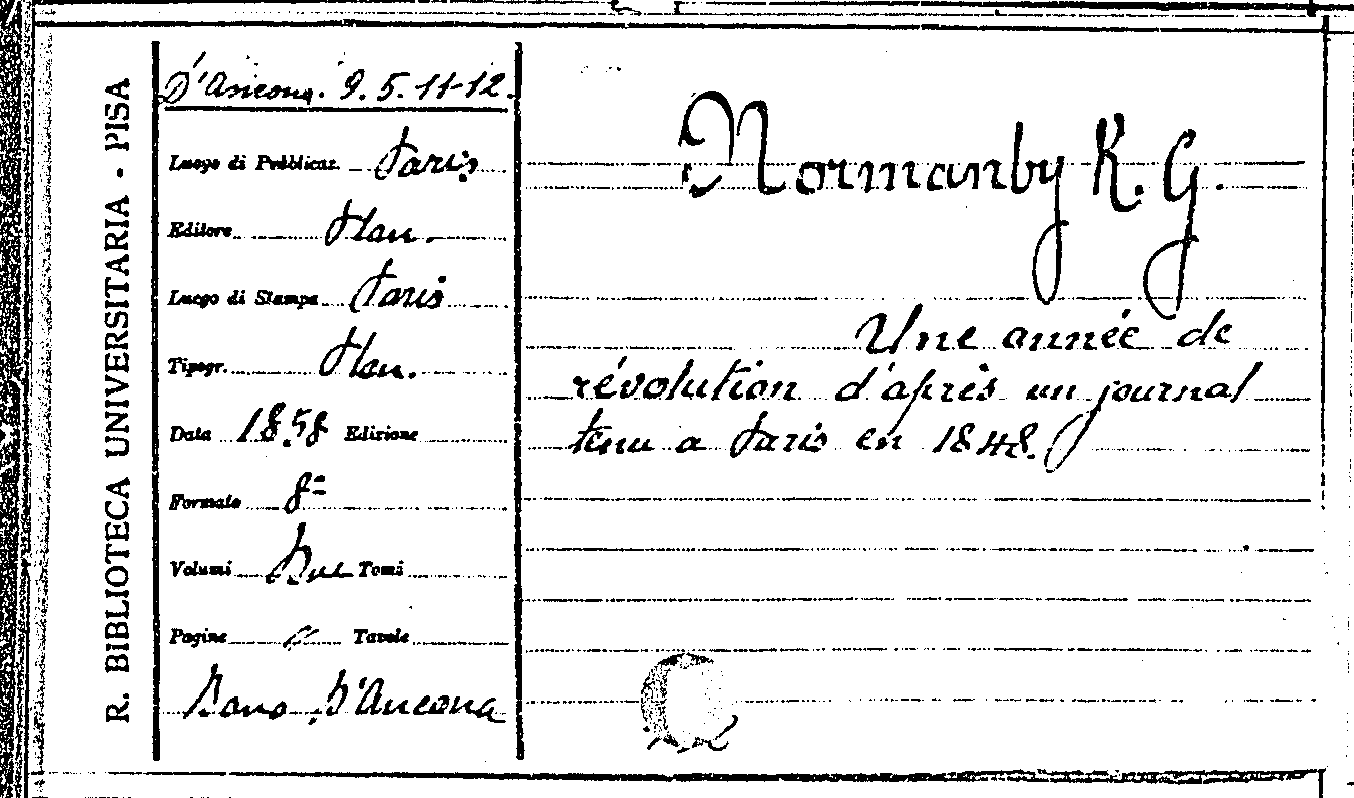 R. BIBLIOTECA UNIVERSITARIA - PISA
D'Ancona. 9. 5. 11-12.
Luogo di Pubblicaz. Paris
Editore Plon.
Luogo di Stampa Paris
Tipogr. Plon.
Data 1858 Edizione
Formato 8=
Volumi Due Tomi
Pagine Tavole
Dono D'Ancona
Normanby K. G.
Une année de
révolution d'après un journal
tenu a Paris en 1848.